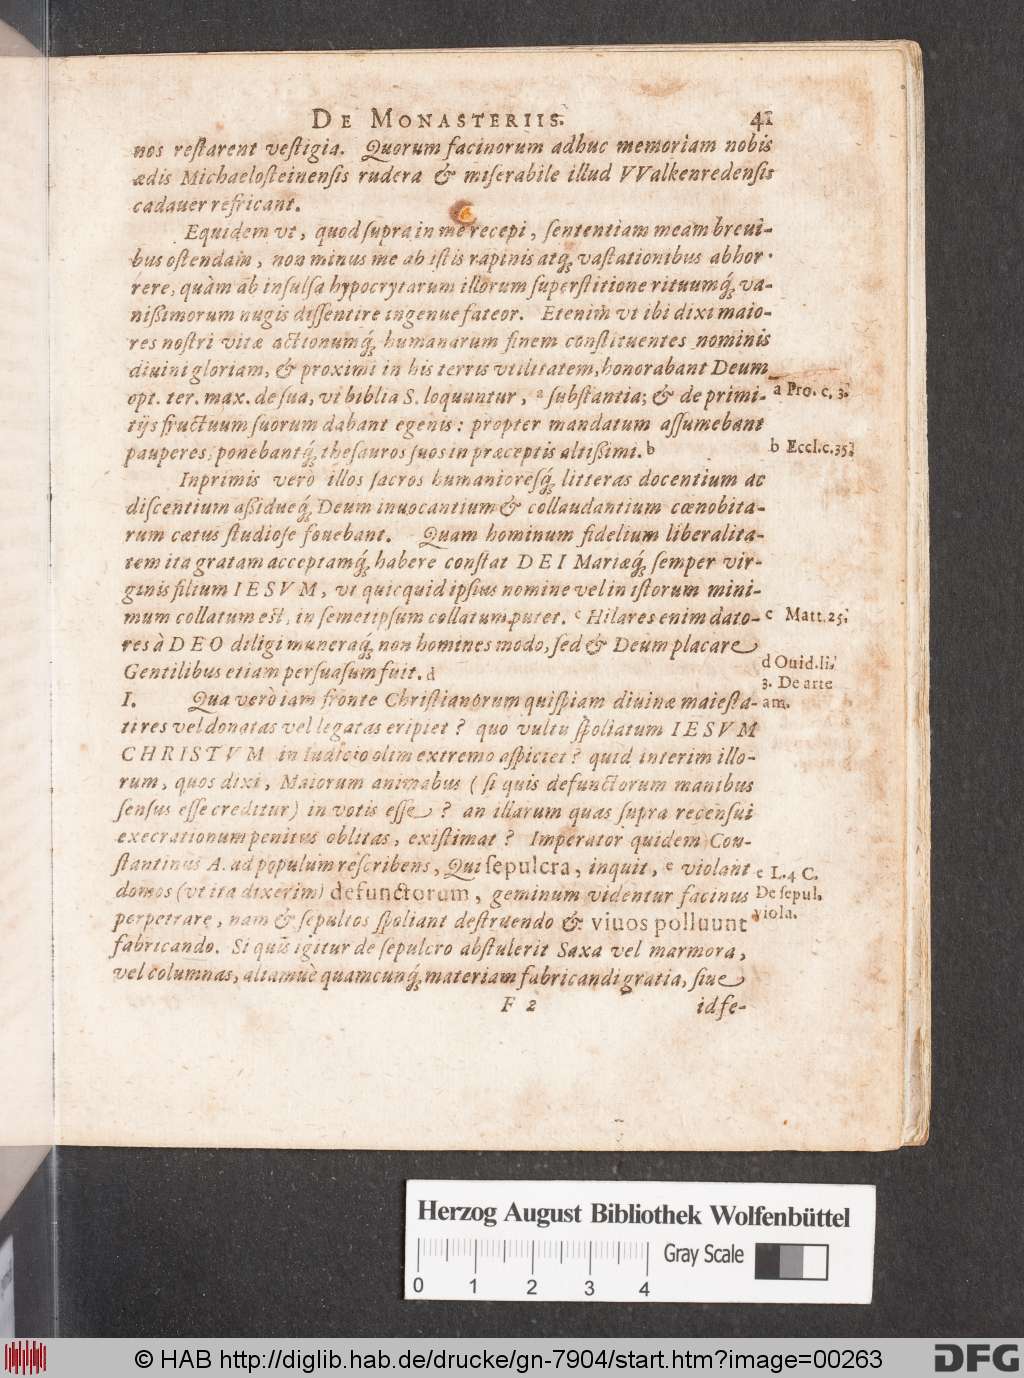 DE MONASTERIIS. 41
nos restarent vestigia. Quorum facinorum adhuc memoriam nobis
ædis Michaelosteinensis rudera & miserabile illud VValkenredensis
cadaver refricant.
Equidem vt, quod supra in me recepi, sententiam meam brevi-
bus ostendam, non minus me ab istis rapinis atq; vastationibus abhor-
rere, quàm ab insulsa hypocrytarum illorum superstitione rituumq; va-
nißimorum nugis dissentire ingenue fateor. Etenim vt ibi dixi maio-
res nostri vitæ actionumq; humanarum finem constituentes nominis
divini gloriam, & proximi in his terris vtilitatem, honorabant Deum
opt. ter. max. de sua, vt biblia S. loquuntur, a substantia; & de primi-
tijs fructuum suorum dabant egenis: propter mandatum assumebant
pauperes, ponebantq; thesauros suos in præceptis altißimi. b
a Pro. c. 3.
b Eccl. c. 35.
Inprimis verò illos sacros humanioresq; litteras docentium ac
discentium aßidueq; Deum inuocantium & collaudantium cœnobita-
rum cætus studiose fouebant. Quam hominum fidelium liberalita-
tem ita gratam acceptamq; habere constat DEI Mariæq; semper vir-
ginis filium IESVM, vt quicquid ipsius nomine vel in istorum mini-
mum collatum est, in semetipsum collatum putet. c Hilares enim dato-
res à DEO diligi muneraq; non homines modo, sed & Deum placare
Gentilibus etiam persuasum fuit. d
c Matt. 25.
d Ouid. li.
3. De arte
am.
I. Qua verò iam fronte Christianorum quispiam divinæ maiesta-
ti res vel donatas vel legatas eripiet? quo vultu spoliatum IESVM
CHRISTVM in Iudicio olim extremo aspiciet? quid interim illo-
rum, quos dixi, Maiorum animabus (si quis defunctorum manibus
sensus esse creditur) in votis esse? an illarum quas supra recensui
execrationum penitus oblitas, existimat? Imperator quidem Con-
stantinus A. ad populum rescribens, Qui sepulcra, inquit, e violant
domos (vt ita dixerim) defunctorum, geminum videntur facinus
perpetrare, nam & sepultos spoliant destruendo & viuos polluunt
fabricando. Si quis igitur de sepulcro abstulerit Saxa vel marmora,
vel columnas, aliamuè quamcunq; materiam fabricandi gratia, siue
e L. 4 C.
De sepul.
viola.
F 2 id fe-
Herzog August Bibliothek Wolfenbüttel
Gray Scale
0 1 2 3 4
© HAB http://diglib.hab.de/drucke/gn-7904/start.htm?image=00263
DFG